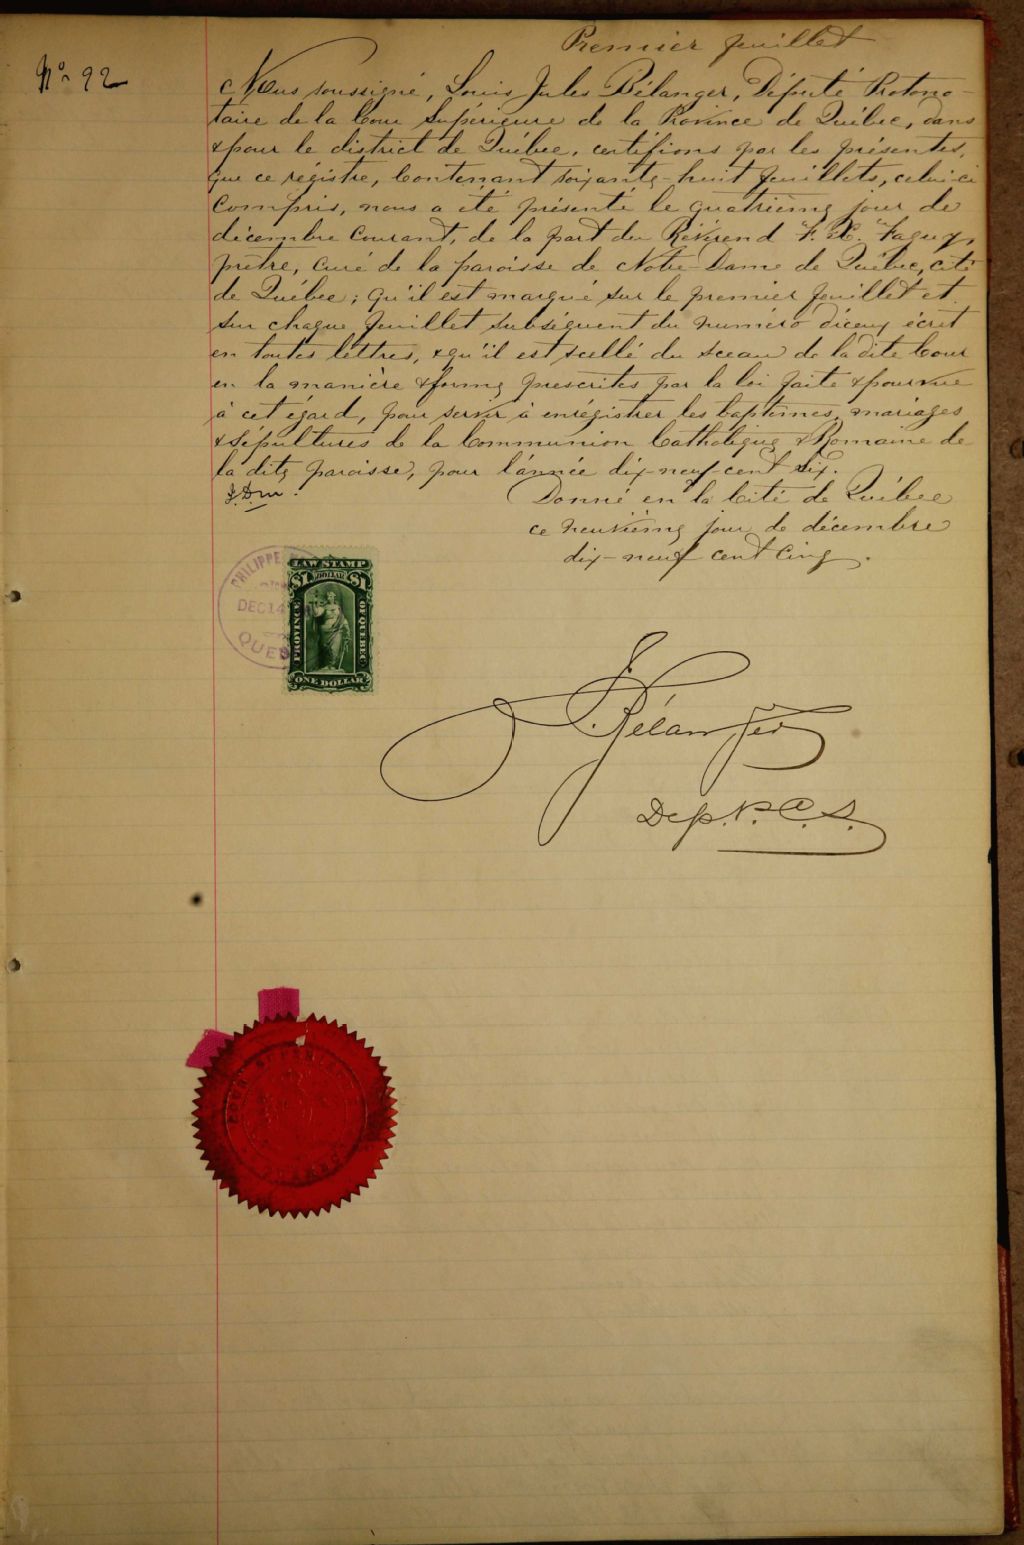 Premier feuillet
No. 92
Nous soussigné, Louis Jules Bélanger, Député Protono-
taire de la Cour Supérieure de la Province de Québec, dans
& pour le district de Québec, certifions par les présentes,
que ce régistre, Contenant soixante-huit feuillets, celui-ci
Compris, nous a été présenté le quatrième jour de
décembre Courant, de la part du Révérend F. X. Faguy,
prêtre, Curé de la paroisse de Notre-Dame de Québec, cité
de Québec; qu'il est marqué sur le premier feuillet et
sur chaque feuillet subséquent du numéro d'iceux écrit
en toutes lettres, & qu'il est scellé du sceau de la dite Cour
en la manière & forme prescrites par la loi faite & pourvue
à cet égard, pour servir à enrégistrer les baptêmes, mariages
& sépultures de la Communion Catholique & Romaine de
la dite paroisse, pour l'année dix-neuf-cent six.
Donné en la Cité de Québec
ce neuvième jour de décembre
dix-neuf cent cinq.
PHILIPPE
DEC 14
QUEB
LAW STAMP
$1 DOLLAR $1
PROVINCE OF QUEBEC
ONE DOLLAR
L. J. Bélanger
Dep. P. C. S.
COUR SUPERIEURE
QUEBEC